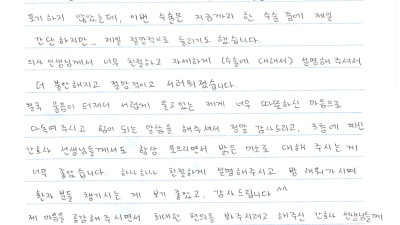 포기하지 않았는데, 이번 수술은 지금까지 한 수술 중에 제일
간단하지만... 제일 절망적으로 들리기도 했습니다.
의사 선생님께서 너무 친절하고 자세하게 (수술에 대해서) 설명해 주셔서
더 불안해지고 절망적이고 서러워졌습니다.
결국 울음이 터져서 서럽게 울고있는 제게 너무 따뜻하신 마음으로
다독여주시고 힘이 되는 말씀을 해주셔서 정말 감사드리고, 3층에 계신
간호사 선생님들께서도 항상 웃으시면서 밝은 미소로 대해 주시는게
너무 좋았습니다. 하나하나 친절하게 설명해주시고 밤 새워가시며
환자분들 챙기시는 게 보기 좋았고, 감사드립니다^^
제 마음을 공감해주시면서 최대한 편의를 봐주시려고 해주신 간호사 선생님들께